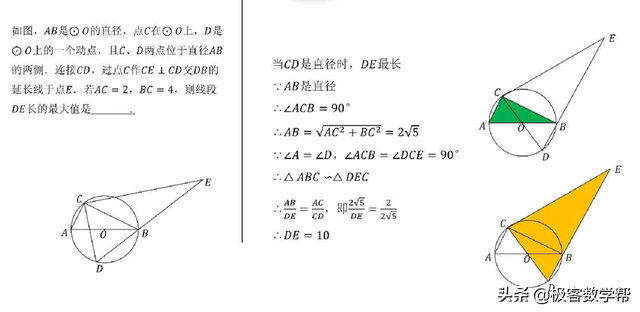 如图，AB是⊙O的直径，点C在⊙O上，D是
⊙O上的一个动点，且C、D两点位于直径AB
的两侧．连接CD，过点C作CE⊥CD交DB的
延长线于点E．若AC=2，BC=4，则线段
DE长的最大值是______．
C
E
A
O
B
D
当CD是直径时，DE最长
∵AB是直径
∴∠ACB=90°
∴AB=√(AC²+BC²)=2√5
∵∠A=∠D，∠ACB=∠DCE=90°
∴△ABC∽△DEC
∴AB/DE=AC/CD，即2√5/DE=2/2√5
∴DE=10
E
C
A
O
B
D
E
C
A
O
B
头条 @极客数学帮